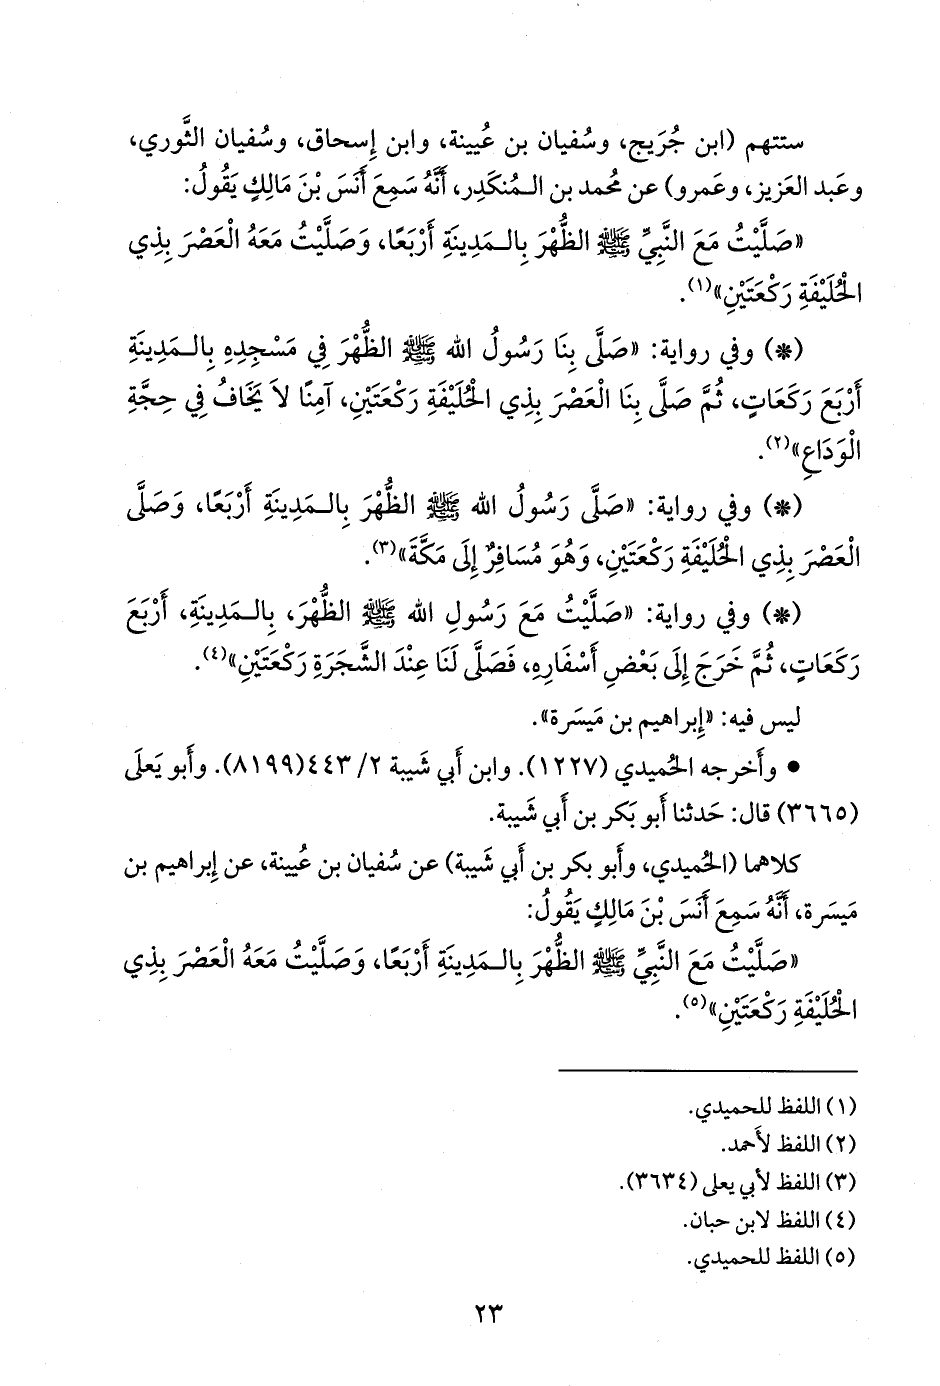 ستتهم (ابن جُرَيج، وسُفيان بن عُيينة، وابن إِسحاق، وسُفيان الثَّوري،
وعَبد العَزيز، وعَمرو) عن مُحمد بن الـمُنكَدِر، أَنَّهُ سَمِعَ أَنَسَ بْنَ مَالِكٍ يَقُولُ:
«صَلَّيْتُ مَعَ النَّبِيِّ ﷺ الظُّهْرَ بِالـمَدِينَةِ أَرْبَعًا، وَصَلَّيْتُ مَعَهُ الْعَصْرَ بِذِي
الْحُلَيْفَةِ رَكْعَتَيْنِ»(١).
(*) وفي رواية: «صَلَّى بِنَا رَسُولُ الله ﷺ الظُّهْرَ فِي مَسْجِدِهِ بِالـمَدِينَةِ
أَرْبَعَ رَكَعَاتٍ، ثُمَّ صَلَّى بِنَا الْعَصْرَ بِذِي الْحُلَيْفَةِ رَكْعَتَيْنِ، آمِنًا لاَ يَخَافُ فِي حِجَّةِ
الْوَدَاعِ»(٢).
(*) وفي رواية: «صَلَّى رَسُولُ الله ﷺ الظُّهْرَ بِالـمَدِينَةِ أَرْبَعًا، وَصَلَّى
الْعَصْرَ بِذِي الْحُلَيْفَةِ رَكْعَتَيْنِ، وَهُوَ مُسَافِرٌ إِلَى مَكَّةَ»(٣).
(*) وفي رواية: «صَلَّيْتُ مَعَ رَسُولِ الله ﷺ الظُّهْرَ، بِالـمَدِينَةِ، أَرْبَعَ
رَكَعَاتٍ، ثُمَّ خَرَجَ إِلَى بَعْضِ أَسْفَارِهِ، فَصَلَّى لَنَا عِنْدَ الشَّجَرَةِ رَكْعَتَيْنِ»(٤).
ليس فيه: «إِبراهيم بن مَيسَرة».
• وأَخرجه الحُميدي (١٢٢٧). وابن أَبي شَيبة ٢/ ٤٤٣(٨١٩٩). وأَبو يَعلَى
(٣٦٦٥) قال: حَدثنا أَبو بَكر بن أَبي شَيبة.
كلاهما (الحُميدي، وأَبو بكر بن أَبي شَيبة) عن سُفيان بن عُيينة، عن إِبراهيم بن
مَيسَرة، أَنَّهُ سَمِعَ أَنَسَ بْنَ مَالِكٍ يَقُولُ:
«صَلَّيْتُ مَعَ النَّبِيِّ ﷺ الظُّهْرَ بِالـمَدِينَةِ أَرْبَعًا، وَصَلَّيْتُ مَعَهُ الْعَصْرَ بِذِي
الْحُلَيْفَةِ رَكْعَتَيْنِ»(٥).
(١) اللفظ للحميدي.
(٢) اللفظ لأَحمد.
(٣) اللفظ لأبي يعلى (٣٦٣٤).
(٤) اللفظ لابن حبان.
(٥) اللفظ للحميدي.
٢٣